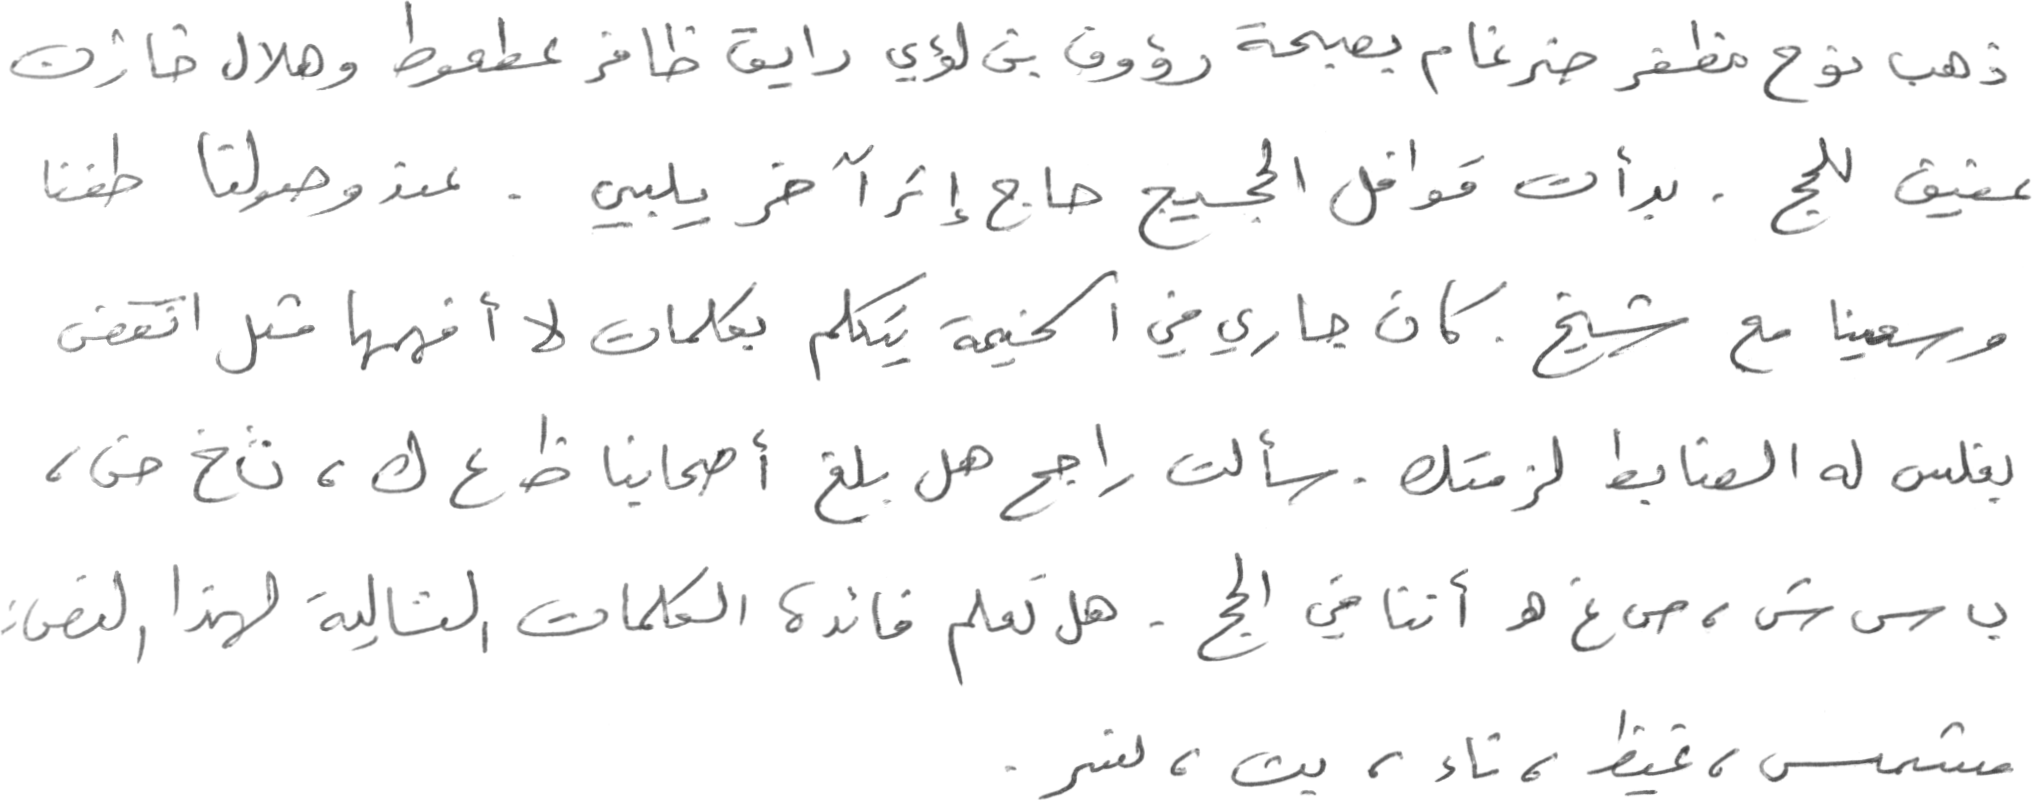 ذهب نوح مظفر ضرغام بصبحة رؤوف بن لؤي رايق ظافر عطعوط وهلال خازن
عفيق للحج . بدأت قوافل الحجيج حاج إثر آخر يلبي . عند وصولنا طفنا
وسعينا مع شيخ . كان جاري في الخيمة يتكلم بكلمات لا أفهمها مثل اتقض
بغلس له الضابط لزمتك . سألت راجح هل بلغ أصحابنا ظ ع ك ، ث خ ض ،
ب س ش ، ص غ ه أننا في الحج . هل تعلم فائدة الكلمات التالية لهذا النص :
مشمس ، غيظ ، تاء ، بث ، نسر .